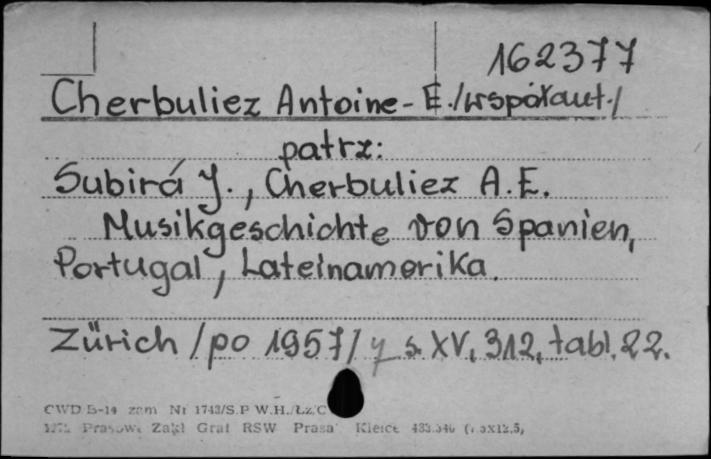 162377
Cherbuliez Antoine-E./współaut./
patrz:
Subirá J., Cherbuliez A.E.
Musikgeschichte von Spanien,
Portugal, Lateinamerika.
Zürich /po 1957/ y s. XV, 312, tabl. 22.
CWD B-14 zam Nr 1743/S.P W.H./Łż/C
Prasowe Zakł Graf RSW Prasa Kielce